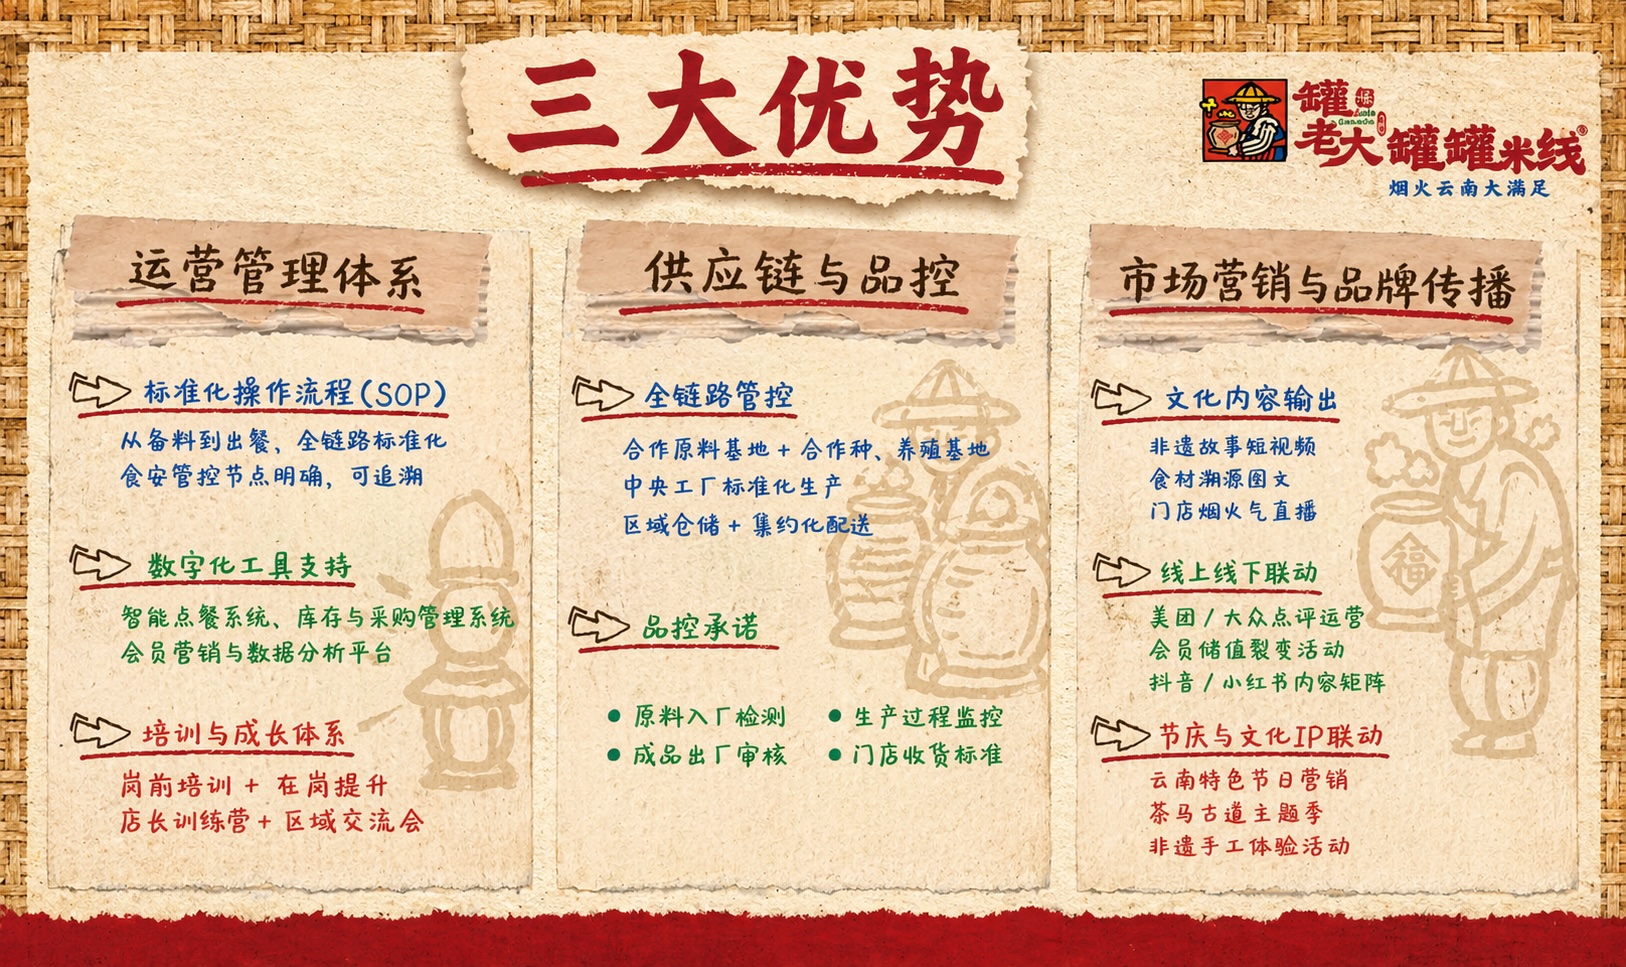 三大优势
罐
老大罐罐米线®
烟火云南大满足
运营管理体系
标准化操作流程(SOP)
从备料到出餐、全链路标准化
食安管控节点明确，可追溯
数字化工具支持
智能点餐系统、库存与采购管理系统
会员营销与数据分析平台
培训与成长体系
岗前培训 + 在岗提升
店长训练营 + 区域交流会
供应链与品控
全链路管控
合作原料基地 + 合作种、养殖基地
中央工厂标准化生产
区域仓储 + 集约化配送
品控承诺
• 原料入厂检测 • 生产过程监控
• 成品出厂审核 • 门店收货标准
市场营销与品牌传播
文化内容输出
非遗故事短视频
食材溯源图文
门店烟火气直播
线上线下联动
美团 / 大众点评运营
会员储值裂变活动
抖音 / 小红书内容矩阵
节庆与文化IP联动
云南特色节日营销
茶马古道主题季
非遗手工体验活动
福